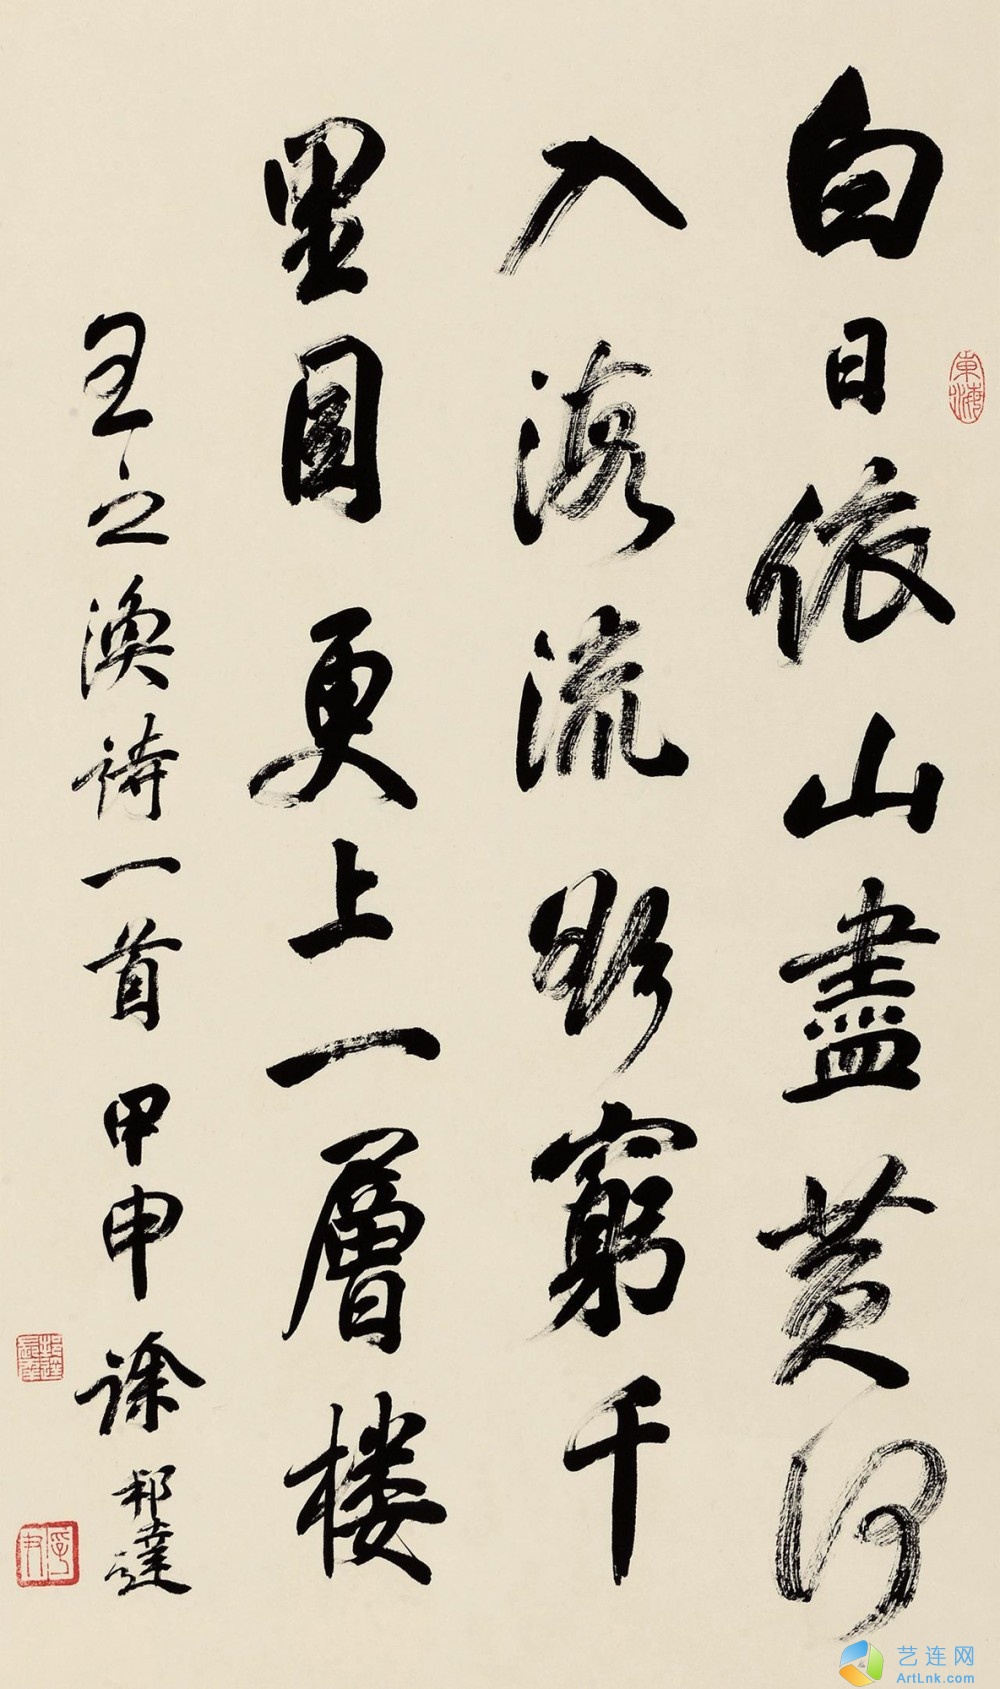 白日依山盡黄河
入海流欲窮千
里目更上一層楼
王之渙詩一首甲申徐邦達
東海
艺连网
ArtLnk.com